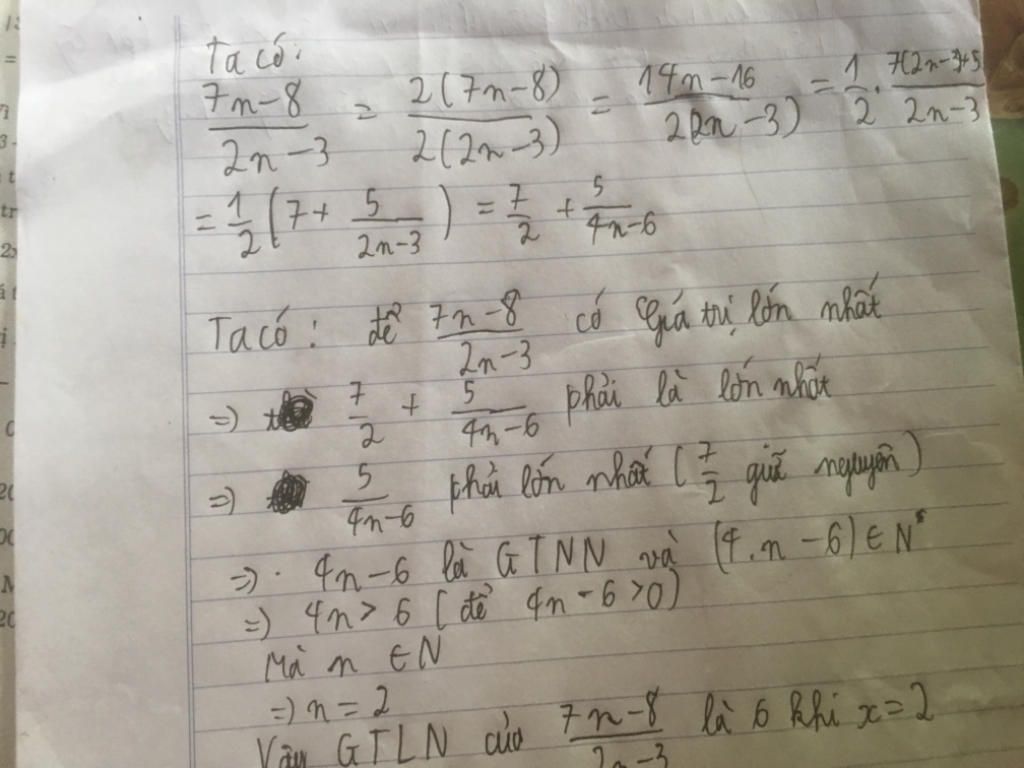 Ta có:
(7n-8)/(2n-3) = 2(7n-8)/2(2n-3) = (14n-16)/2(2n-3) = 1/2 . (7(2n-3)+5)/(2n-3)
= 1/2 (7 + 5/(2n-3)) = 7/2 + 5/(4n-6)
Ta có: để (7n-8)/(2n-3) có giá trị lớn nhất
=> 7/2 + 5/(4n-6) phải là lớn nhất
=> 5/(4n-6) phải lớn nhất (7/2 giữ nguyên)
=> 4n-6 là GTNN và (4.n-6) ∈ N*
=> 4n > 6 (để 4n-6>0)
Mà n ∈ N
=> n = 2
Vậy GTLN của (7n-8)/(2n-3) là 6 khi x=2